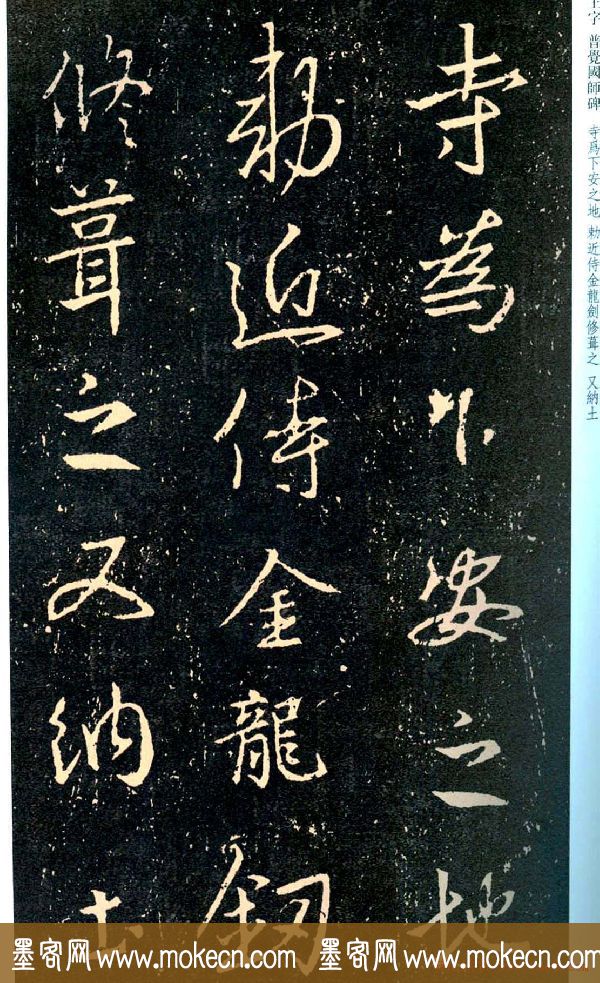 字 普覺國師碑 寺爲下安之地 勅近侍金龍劍修葺之 又納土
寺為下安之地
勅近侍金龍釼
修葺之又納土
墨客网 www.mokecn.com 墨客网 www.mokecn.com